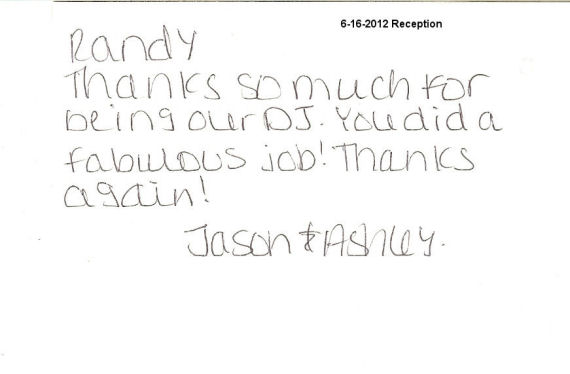 6-16-2012 Reception
Randy
Thanks so much for
being our DJ. You did a
fabulous job! Thanks
again!
Jason & Ashley.